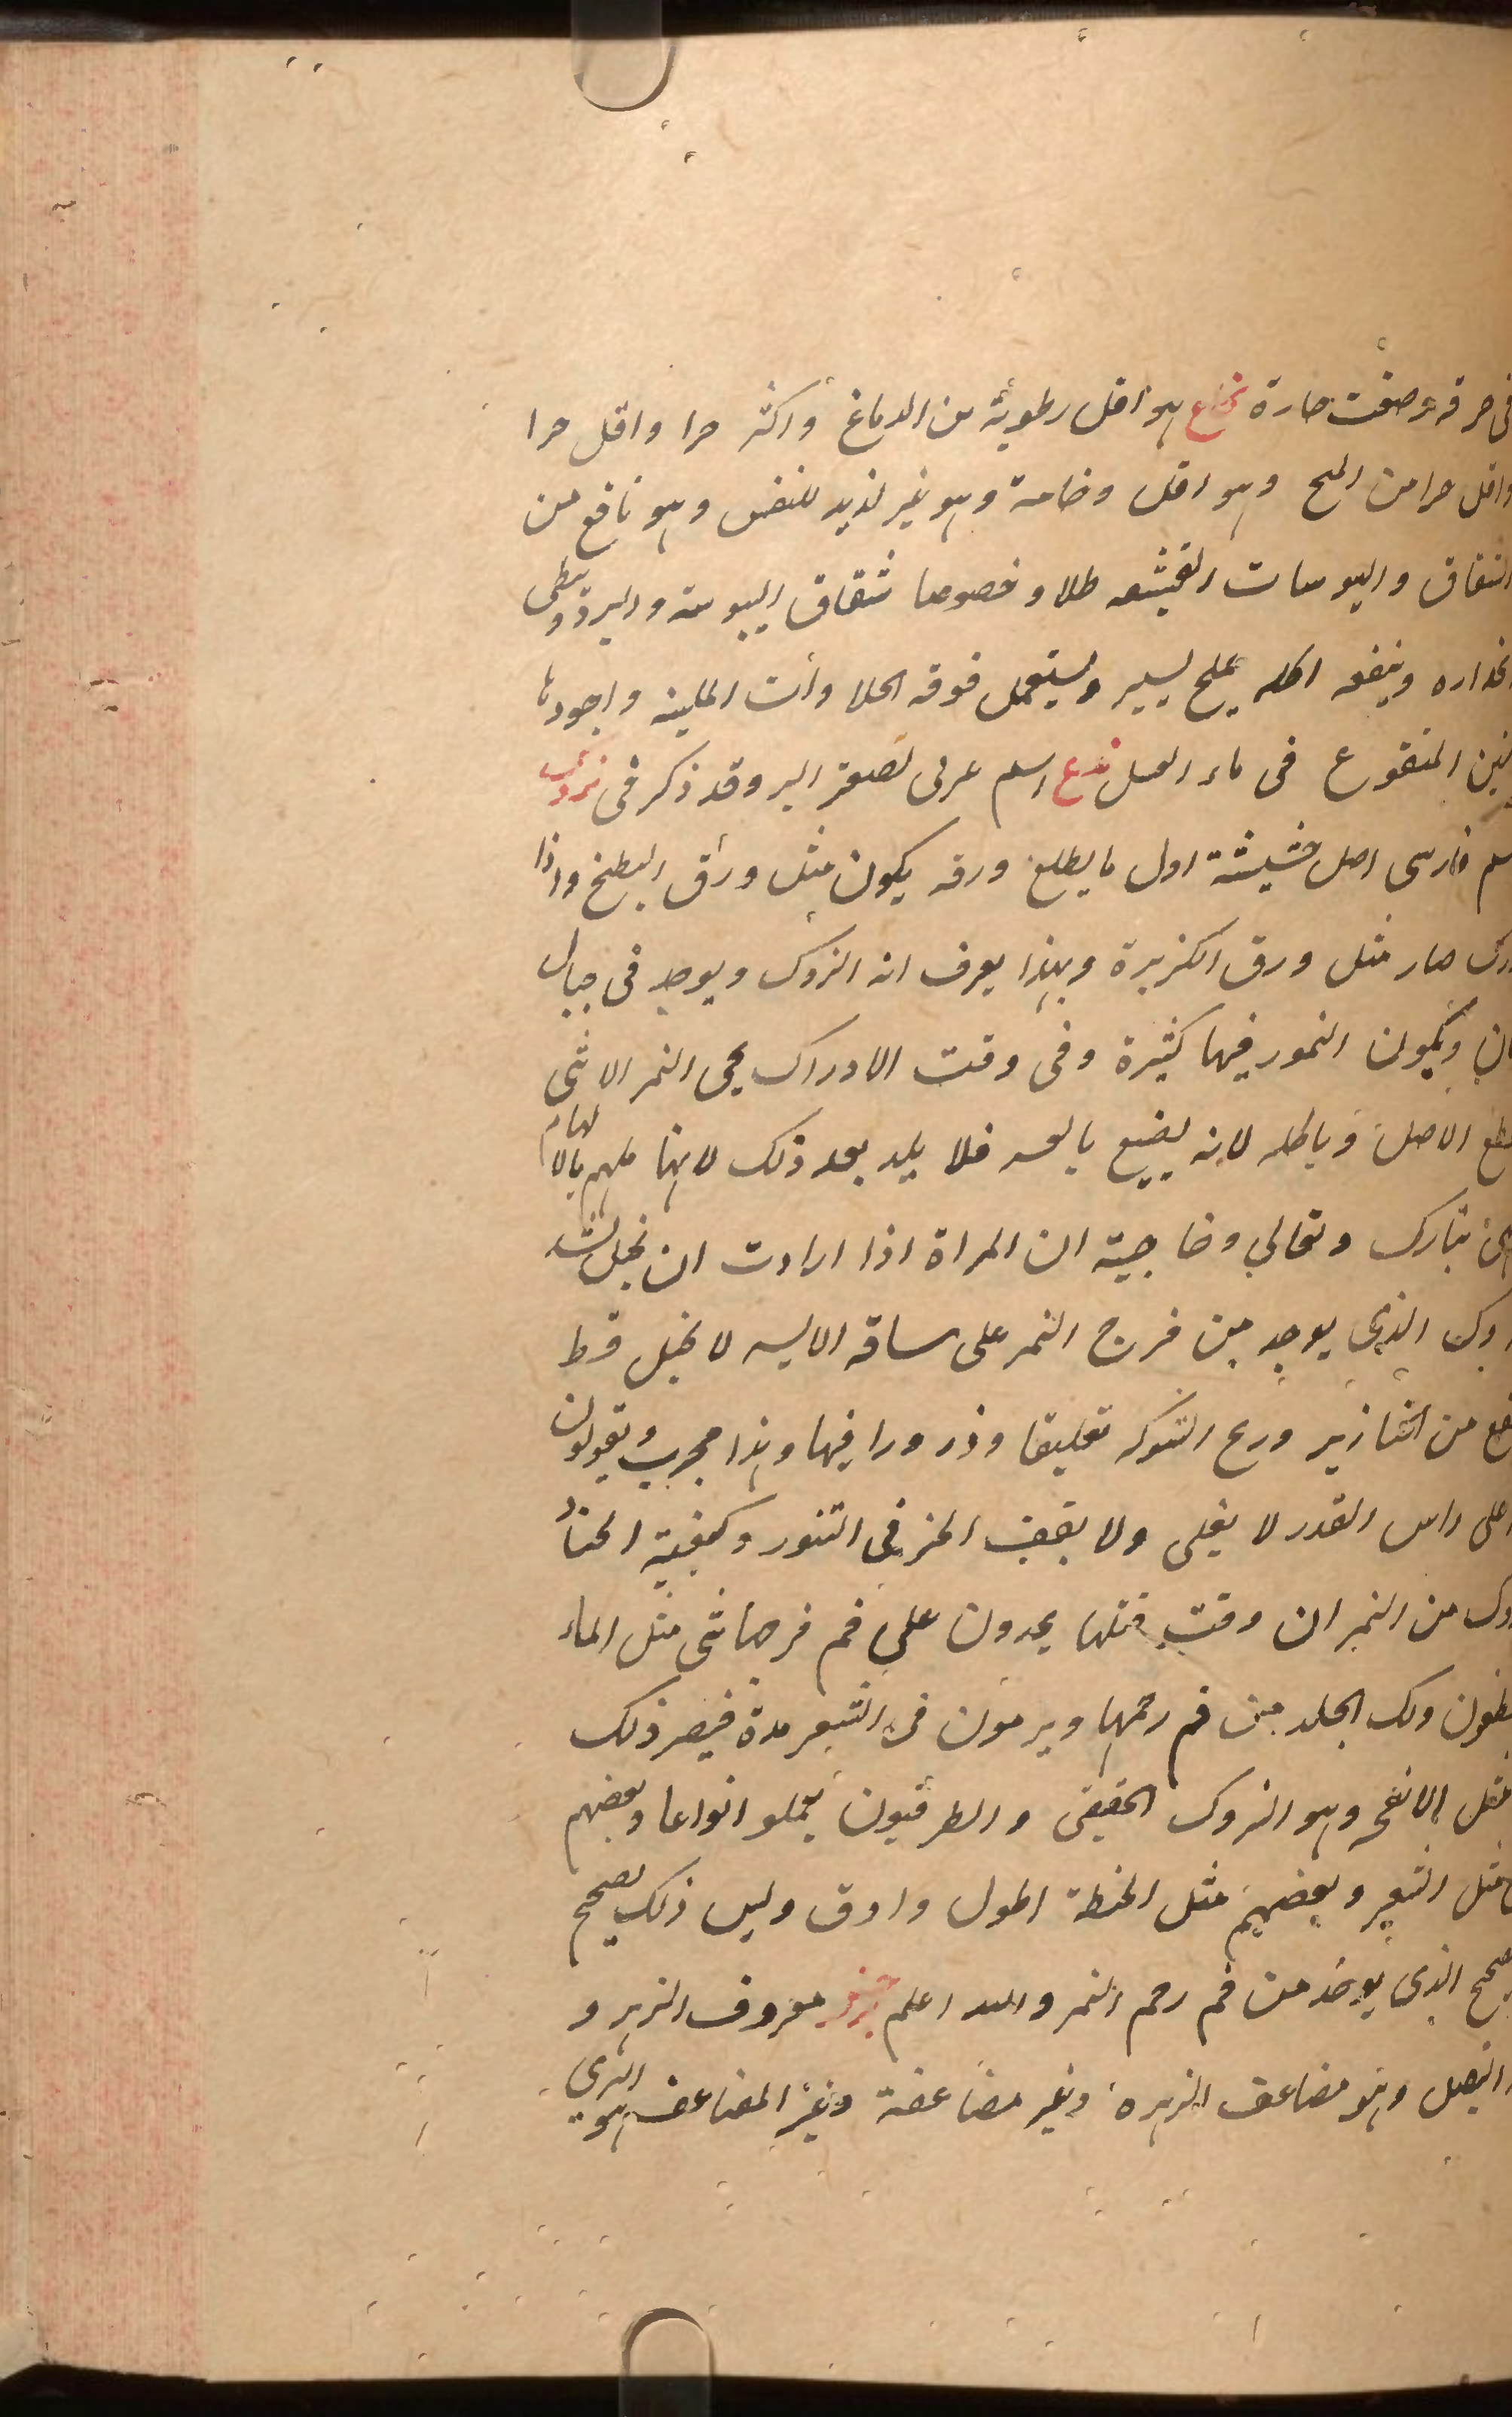 فى حرقة وصفت حارة نخاع هو اقل رطوبة من الدماغ واكثر حرا واقل حرا
واقل حرا من المخ وهو اقل وخامة وهو غير لذيذ للنفس وهو نافع من
الشقاق واليبوسات القشيفه طلا وخصوصا شقاق اليبوسة والبرد ويبطى
انحداره وينفعه اكله بملح يسير ويستعمل فوقه الحلاوات الملينه واجودها
التين المنقوع فى ماء العسل ندغ اسم عربى لصعتر البر وقد ذكر فى
اسم فارسى اصل حشيشة اول ما يطلع ورقه يكون مثل ورق البطيخ واذا
ادرك صار مثل ورق الكزبرة وبهذا يعرف انه النزوك ويوجد فى جبال
ويكون النمور فيها كثيرة وفى وقت الادراك يجى النمر الانثى
يقطع الاصل وياكله لانه يضيع بالعسر فلا يلد بعد ذلك لانها ملهم بالالهام
تبارك وتعالى وخاصيته ان المراة اذا ارادت ان تحبل تشد
الذى يوجد من فرج النمر على ساقه الايسر لا تحبل قط
ينفع من الخنازير وريح الشوكه تعليقا وذرورا فيها وهذا مجرب ويقولون
على راس القدر لا يغلى ولا يقف الخبز فى التنور وكيفية اخذ
من النمر ان وقت قتلها يجدون على فم فرجها شى مثل الماء
ذلك الجلد من فم رحمها ويرمون فى الشعير مدة فيصير ذلك
مثل الانفحه وهو النزوك الحقيقى والطرقيون يعملو انواعا وبعضهم
مثل الشعير وبعضهم مثل الحنطة اطول وادق وليس ذلك بصحيح
الصحيح الذى يوخذ من فم رحم النمر والله اعلم معروف الزهر و
البصل وهو مضاعف الزهره وغير مضاعفة وغير المضاعف هو البرى